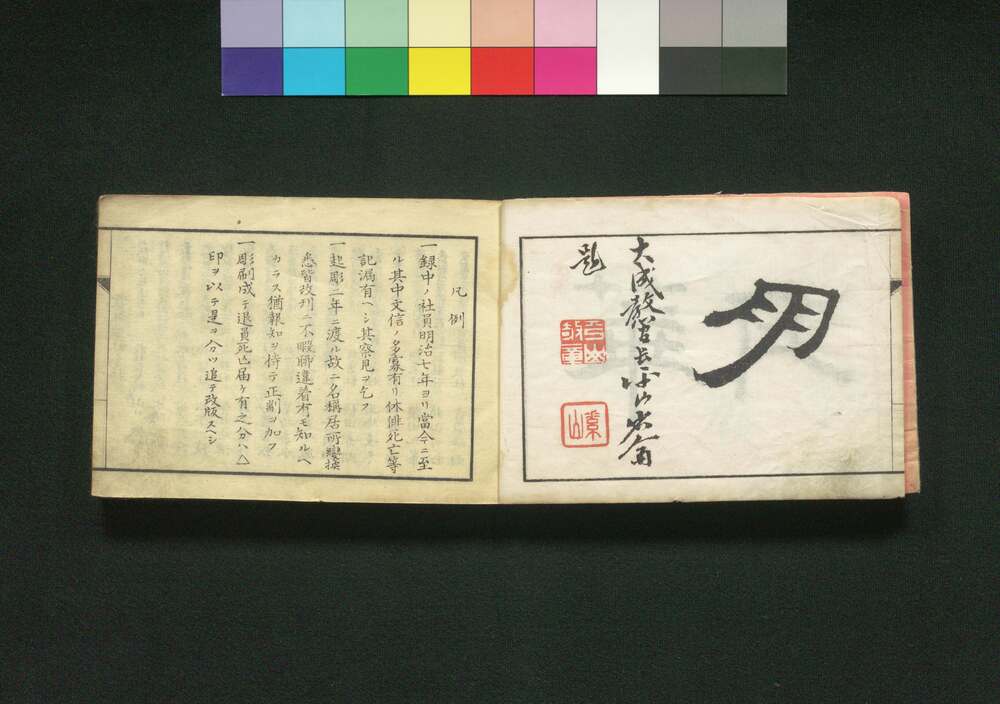 明
大成教管長平山省斎
題
凡例
一録中ノ社員明治七年ヨリ當今ニ至
ル其中文信ノ多寡有リ休俳死亡等
記漏有ヘシ其察見ヲ乞フ
一起彫二年ニ渡ル故ニ名稱居所變換
悉皆改刊ニ不暇聊違着有モ知ルヘ
カラス猶報知ヲ待テ正削ヲ加フ
一彫刷成テ退員死亡届ケ有之分ハ△
印ヲ以テ是ヲ分ツ追テ改版スヘシ